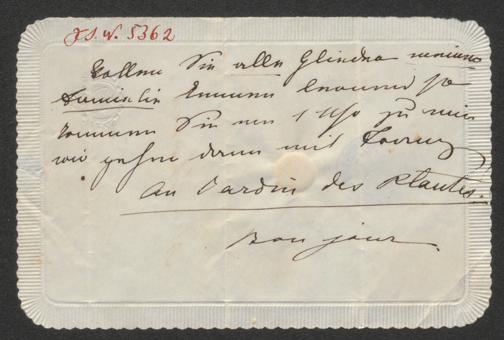 J.N. 5362
Wollen Sie alle Glieder meiner
Familie kennen lernen so
kommen Sie um 1 Uhr zu mir
wir gehen dann mit
au Jardin des Plantes.
Bon jour